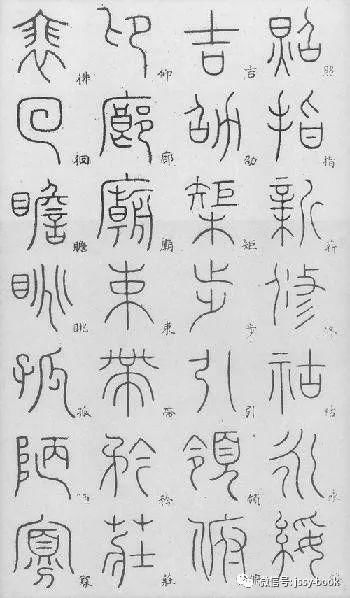 照指薪修祜永綏
吉劭矩步引領俯
仰廊廟束帶矜莊
徘徊瞻眺孤陋寡
微信号: jssy-book